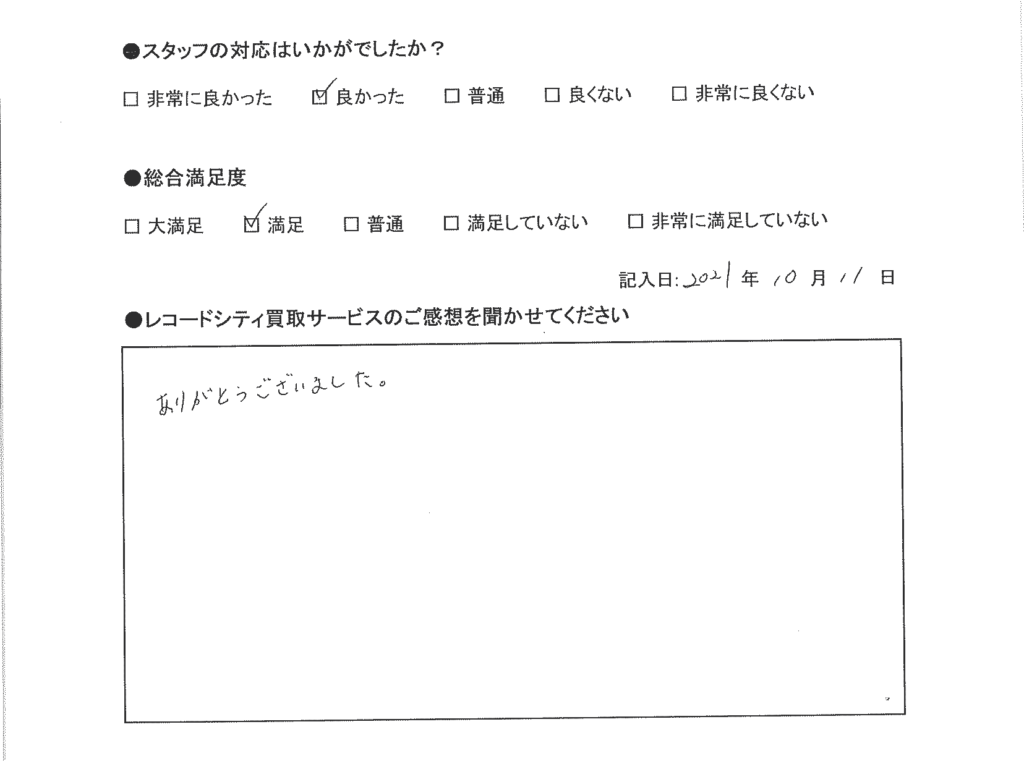 ●スタッフの対応はいかがでしたか？
□ 非常に良かった ☑ 良かった □ 普通 □ 良くない □ 非常に良くない
●総合満足度
□ 大満足 ☑ 満足 □ 普通 □ 満足していない □ 非常に満足していない
記入日:2021年10月11日
●レコードシティ買取サービスのご感想を聞かせてください
ありがとうございました。